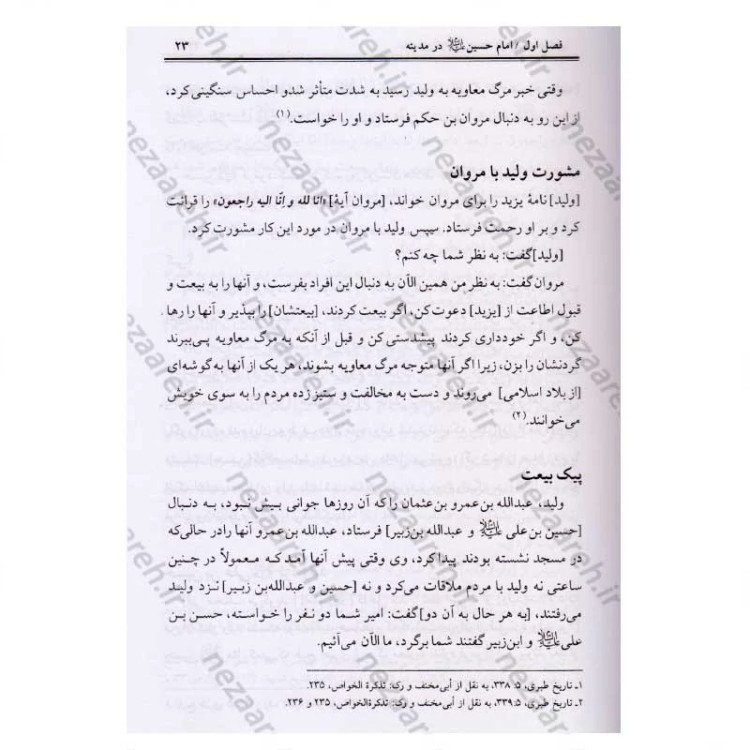 فصل اول / امام حسین علیه‌السلام در مدینه ۲۳
وقتی خبر مرگ معاویه به ولید رسید به شدت متأثر شدو احساس سنگینی کرد،
از این رو به دنبال مروان بن حکم فرستاد و او را خواست.(۱)
مشورت ولید با مروان
[ولید] نامهٔ یزید را برای مروان خواند، [مروان آیهٔ] «انا لله و إنّا الیه راجعون» را قرائت
کرد و بر او رحمت فرستاد. سپس ولید با مروان در مورد این کار مشورت کرد.
[ولید]گفت: به نظر شما چه کنم؟
مروان‌گفت: به نظر من همین الآن به دنبال این افراد بفرست، و آنها را به بیعت و
قبول اطاعت از [یزید] دعوت‌کن، اگر بیعت کردند، [بیعتشان] را بپذیر و آنها را رها
کن، و اگر خودداری کردند پیشدستی‌کن و قبل از آنکه به مرگ معاویه پی‌ببرند
گردنشان را بزن، زیرا اگر آنها متوجه مرگ معاویه بشوند، هر یک از آنها به گوشه‌ای
[از بلاد اسلامی] می‌روند و دست به مخالفت و ستیز زده مردم را به سوی خویش
می‌خوانند.(۲)
پیک بیعت
ولید، عبدالله بن‌عمرو بن‌عثمان را که آن روزها جوانی بیش نبود، به دنبال
[حسین بن‌علی علیه‌السلام و عبدالله بن‌زبیر] فرستاد، عبدالله بن‌عمرو آنها رادر حالی‌که
در مسجد نشسته بودند پیداکرد، وی وقتی پیش آنها آمد که معمولاً در چنین
ساعتی نه ولید با مردم ملاقات می‌کرد و نه [حسین و عبدالله‌بن زبیر] نزد ولید
می‌رفتند، [به هر حال به آن دو]گفت: امیر شما دو نفر را خواسته، حسن بن
علی علیه‌السلام و ابن‌زبیر گفتند شما برگرد، ما الآن می‌آئیم.
۱ـ تاریخ طبری، ۵: ۳۳۸، به نقل از أبی‌مخنف و رک: تذکرةالخواص، ۲۳۵.
۲ـ تاریخ طبری، ۵: ۳۳۹، به نقل از أبی‌مخنف و رک: تذکرةالخواص، ۲۳۵ و ۲۳۶.
nezaareh.ir